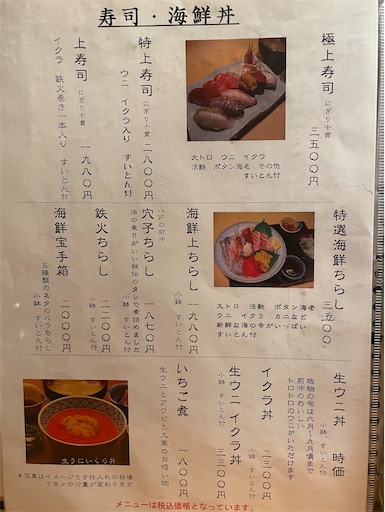 寿司・海鮮丼
極上寿司 三五〇〇円
大トロ ウニ イクラ
活鮑 ボタン海老 その他
すいとん付
特上寿司 にぎり十貫 二八〇〇円
ウニ イクラ入り すいとん付
上寿司 にぎり七貫 一九八〇円
イクラ 鉄火巻き一本入り すいとん付
特選海鮮ちらし 三五〇〇.
大トロ 活鮑 ボタン海老
ウニ イクラ カニなど
新鮮な海の幸がいっぱい
すいとん付
海鮮上ちらし 一九八〇円
小鉢 すいとん付
八戸前沖
穴子ちらし 一八七〇円
油の乗りがいい秘伝のタレで煮詰めました
小鉢 すいとん付
鉄火ちらし 二二〇〇円
小鉢 すいとん付
海鮮宝手箱 二〇〇〇円
五種類のネタのバラちらし
小鉢 すいとん付
生ウニ丼 時価
小鉢 すいとん付
地物の旬は六月～九月頃まで
前沖のおいしい
トロトロのウニがいただけます
イクラ丼 二三〇〇円
小鉢 すいとん付
生ウニ イクラ丼 三三〇〇円
小鉢 すいとん付
いちご煮 一八〇〇円
生ウニとアワビと大葉のお吸い物
生うにいくら丼
*写真はイメージです仕入れの相場
で多少の分量が変わります
メニューは税込価格となっています。